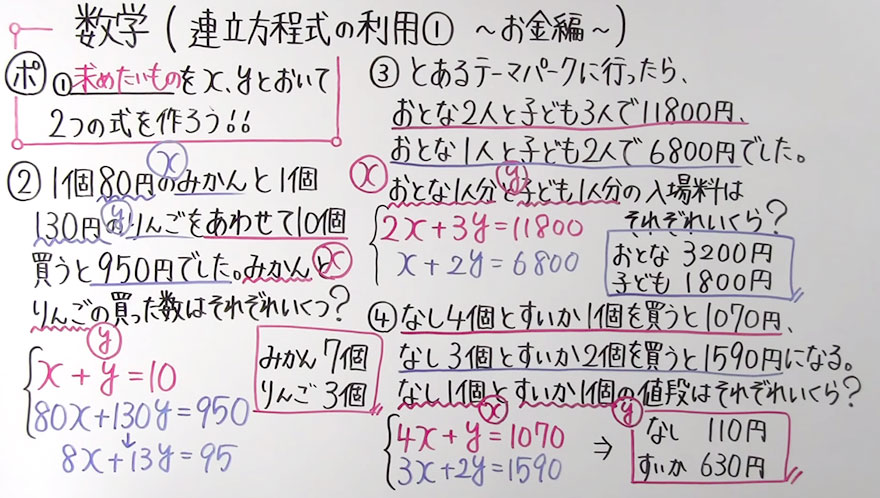 数学(連立方程式の利用① ～お金編～)
ポ ①求めたいものをx、yとおいて
2つの式を作ろう!!
②1個80円のみかんと1個
x
130円のりんごをあわせて10個
y
買うと950円でした。みかんと
x
りんごの買った数はそれぞれいくつ?
y
x+y=10
80x+130y=950
↓
8x+13y=95
みかん7個
りんご3個
③とあるテーマパークに行ったら、
おとな2人と子ども3人で11800円、
おとな1人と子ども2人で6800円でした。
x y
おとな1人分と子ども1人分の入場料は
それぞれいくら?
2x+3y=11800
x+2y=6800
おとな 3200円
子ども 1800円
④なし4個とすいか1個を買うと1070円、
なし3個とすいか2個を買うと1590円になる。
なし1個とすいか1個の値段はそれぞれいくら?
x y
4x+y=1070
3x+2y=1590
⇒
なし 110円
すいか 630円